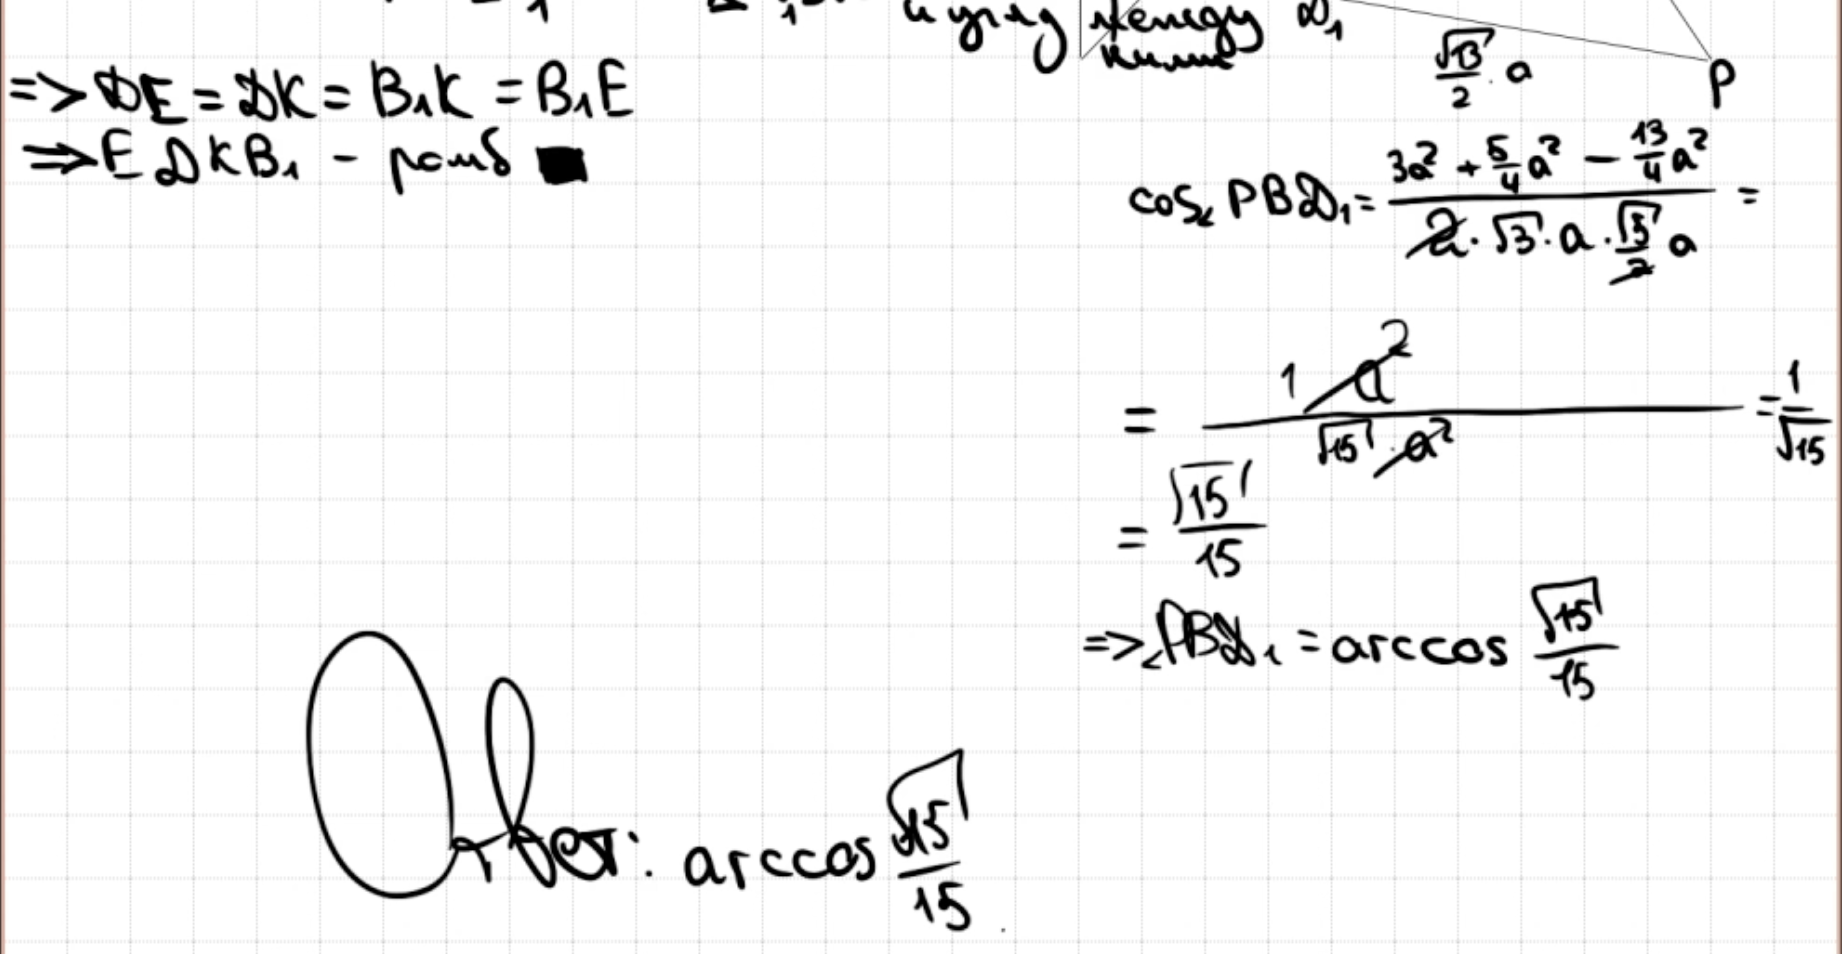 и углу между D₁
ними
√13/2 · a
P
=> DE = DK = B₁K = B₁E
=> EDKB₁ - ромб ■
cos∠PBD₁ = (3a² + 5/4 a² - 13/4 a²)/(2·√3·a·√5/2 a) =
= 1a²/(√15·a²) = 1/√15
= √15/15
=> ∠PBD₁ = arccos √15/15
Ответ: arccos √15/15